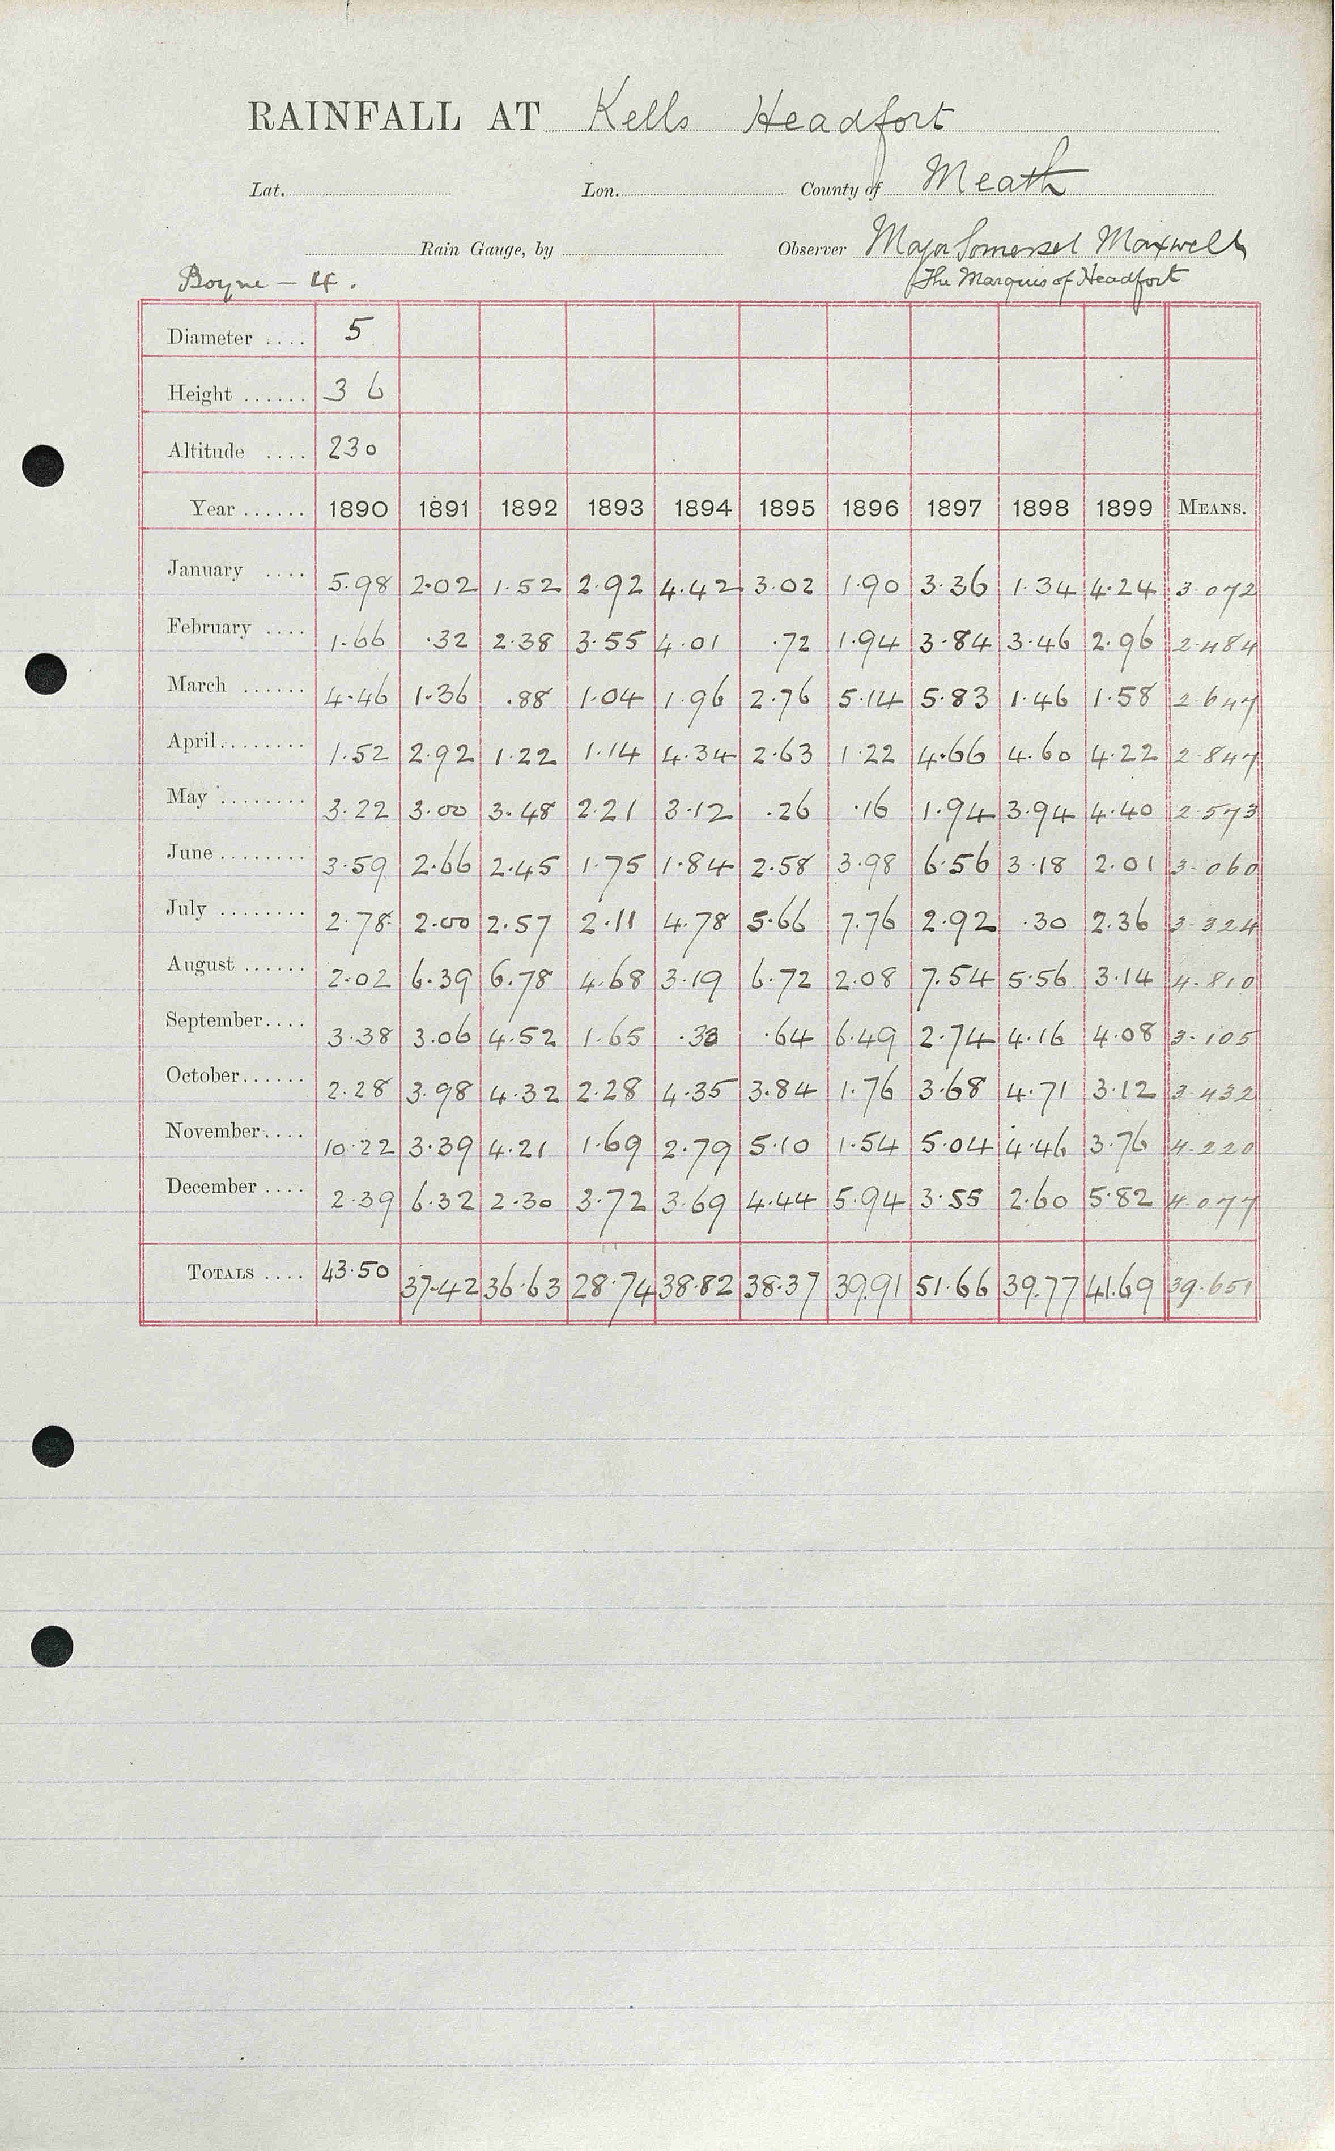 RAINFALL AT Kells Headfort
Lat. Lon. County of Meath
Rain Gauge, by Observer Major Somerset Maxwell
Boyne - 4. The Marquis of Headfort
Diameter .... 5
Height ...... 3 6
Altitude .... 230
Year ...... 1890 1891 1892 1893 1894 1895 1896 1897 1898 1899 MEANS.
January .... 5.98 2.02 1.52 2.92 4.42 3.02 1.90 3.36 1.34 4.24 3.072
February .... 1.66 .32 2.38 3.55 4.01 .72 1.94 3.84 3.46 2.96 2.484
March ...... 4.46 1.36 .88 1.04 1.96 2.76 5.14 5.83 1.46 1.58 2.647
April........ 1.52 2.92 1.22 1.14 4.34 2.63 1.22 4.66 4.60 4.22 2.847
May ........ 3.22 3.00 3.48 2.21 3.12 .26 .16 1.94 3.94 4.40 2.573
June ........ 3.59 2.66 2.45 1.75 1.84 2.58 3.98 6.56 3.18 2.01 3.060
July ........ 2.78 2.00 2.57 2.11 4.78 5.66 7.76 2.92 .30 2.36 3.324
August ...... 2.02 6.39 6.78 4.68 3.19 6.72 2.08 7.54 5.56 3.14 4.810
September.... 3.38 3.06 4.52 1.65 .33 .64 6.49 2.74 4.16 4.08 3.105
October...... 2.28 3.98 4.32 2.28 4.35 3.84 1.76 3.68 4.71 3.12 3.432
November.... 10.22 3.39 4.21 1.69 2.79 5.10 1.54 5.04 4.46 3.76 4.220
December .... 2.39 6.32 2.30 3.72 3.69 4.44 5.94 3.55 2.60 5.82 4.077
TOTALS .... 43.50 37.42 36.63 28.74 38.82 38.37 39.91 51.66 39.77 41.69 39.651